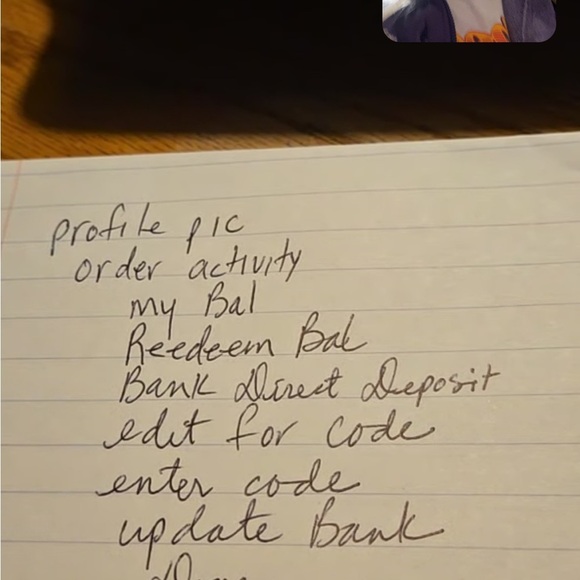 profile pic
order activity
my Bal
Reedeem Bal
Bank Direct Deposit
edit for code
enter code
update Bank